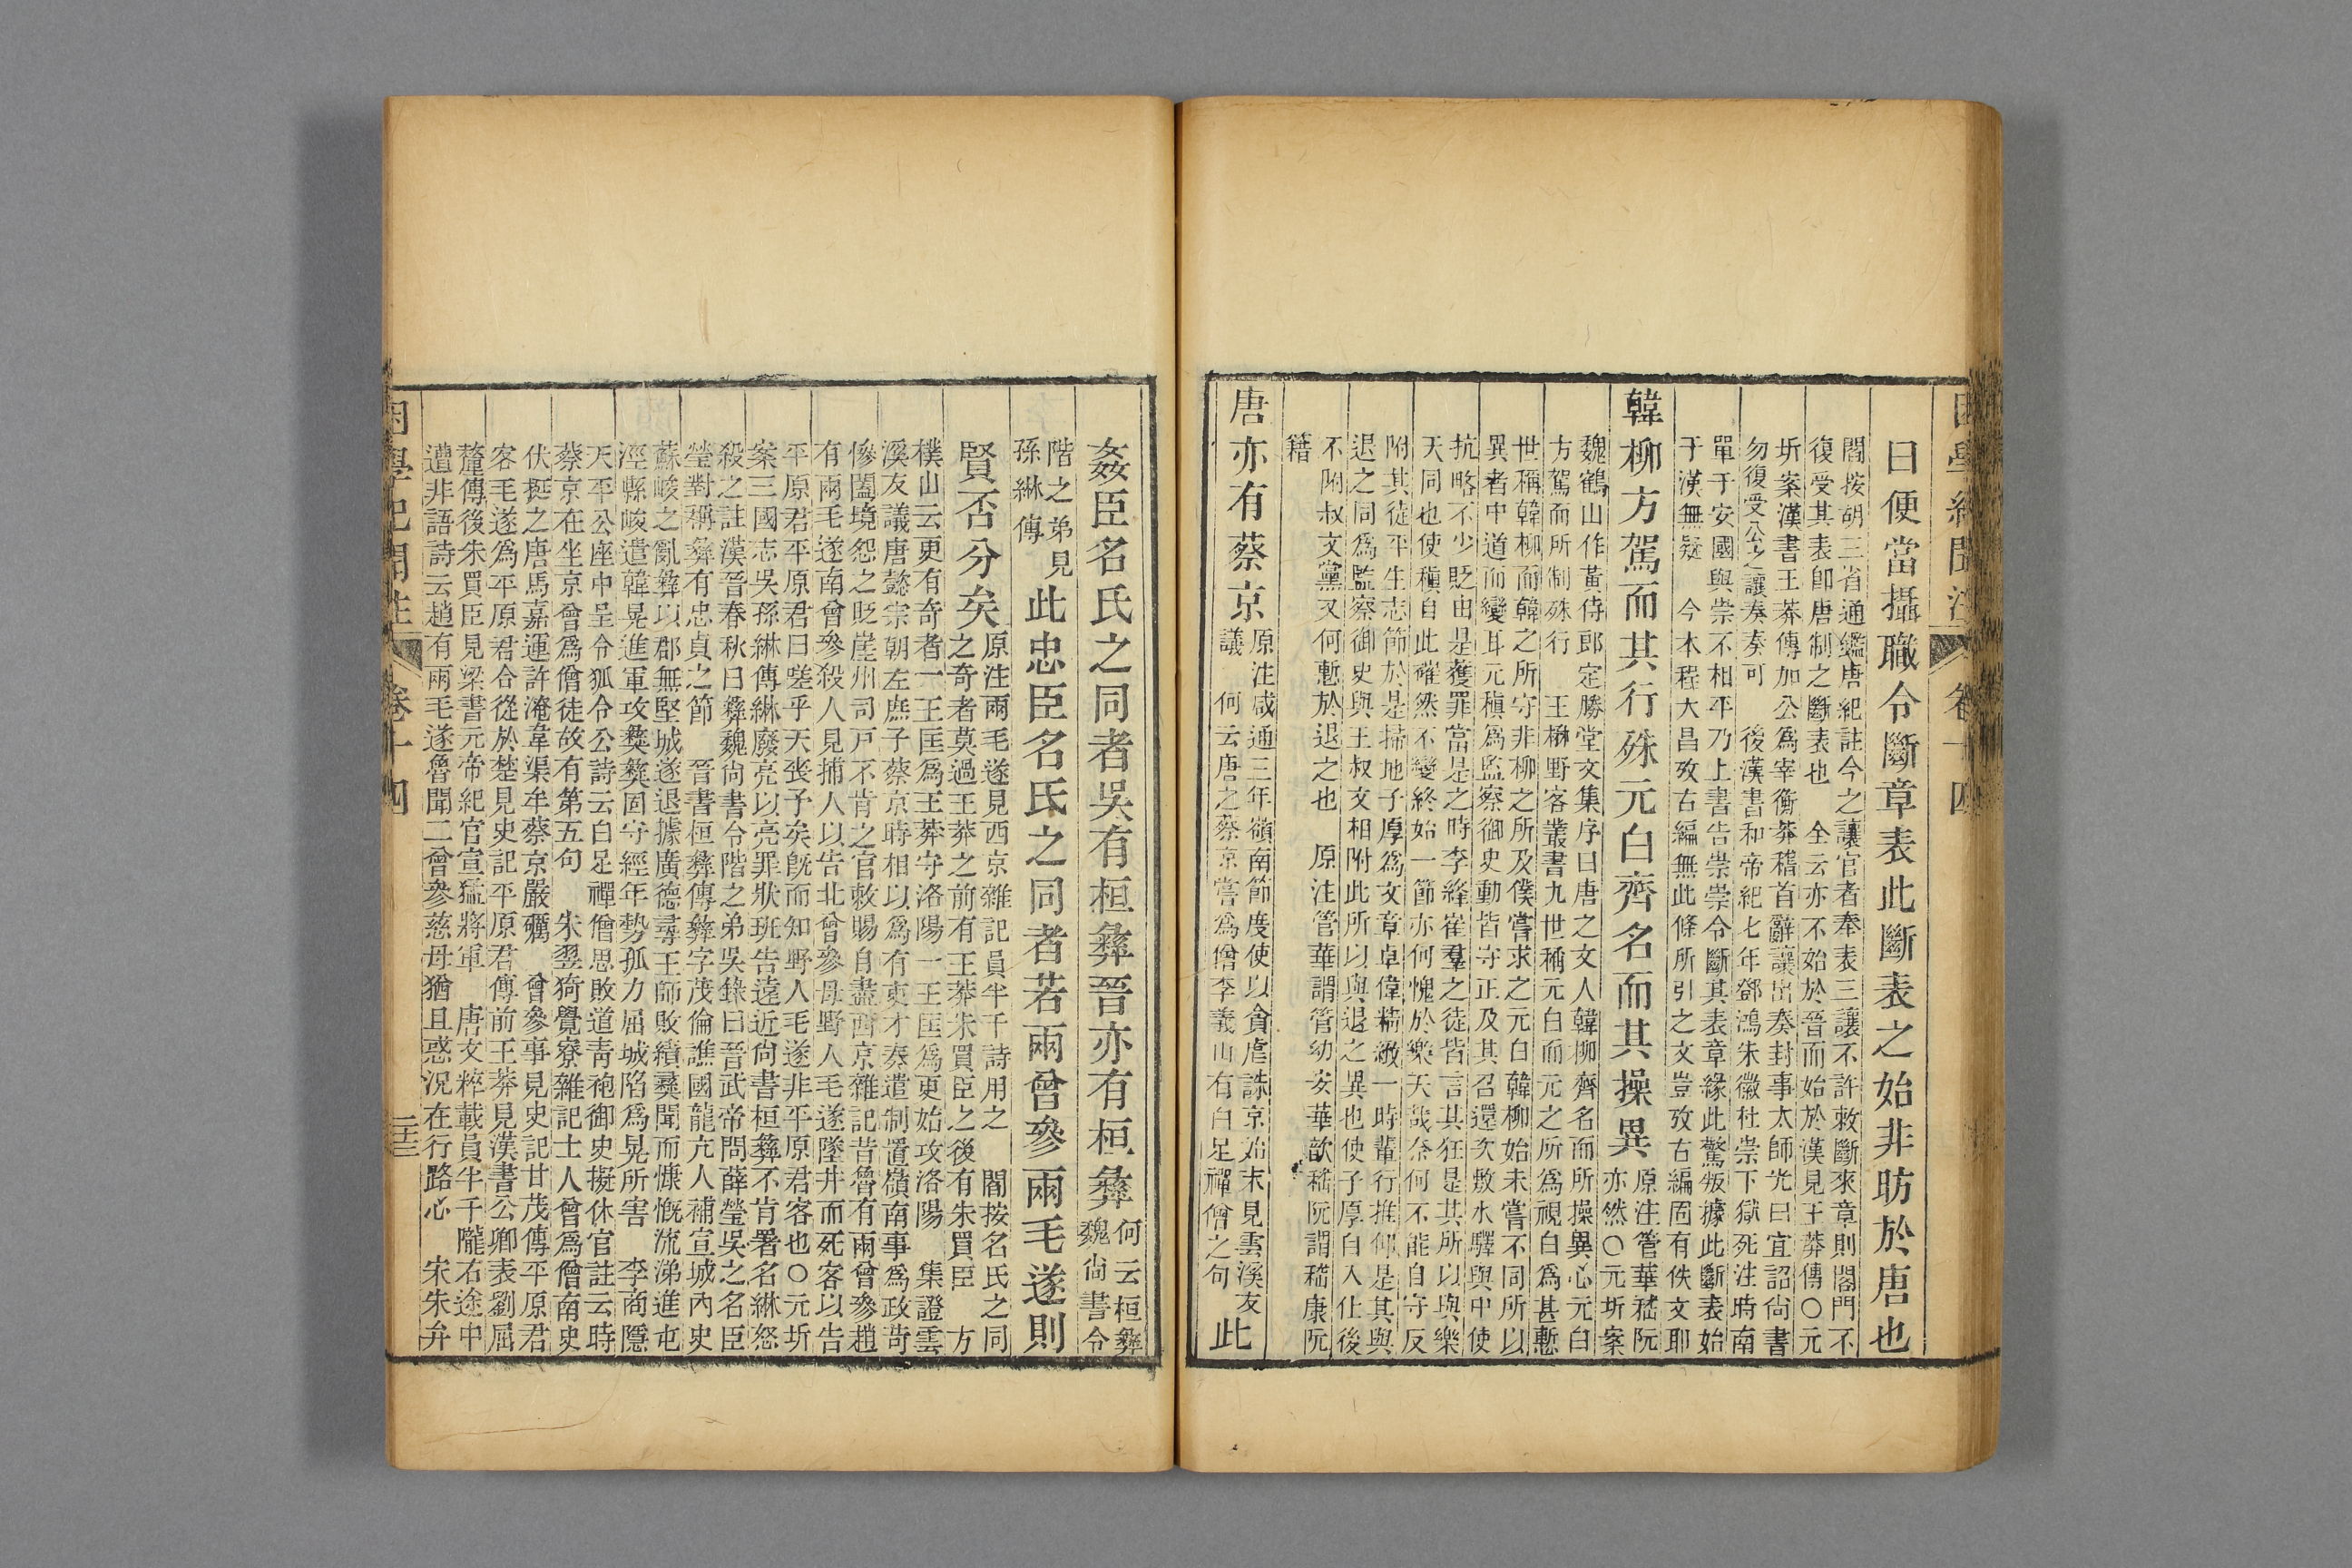 困學紀聞注 卷十四
曰便當攝職令斷章表此斷表之始非昉於唐也
閻按胡三省通鑑唐紀註今之讓官者奉表三讓不許敕斷來章則閤門不
復受其表卽唐制之斷表也 全云亦不始於晉而始於漢見王莽傳〇元
圻案漢書王莽傳加公爲宰衡莽稽首辭讓出奏封事太師光曰宜詔尙書
勿復受公之讓奏奏可 後漢書和帝紀七年鄧鴻朱徽杜崇下獄死注時南
單于安國與崇不相平乃上書告崇崇令斷其表章緣此驚叛據此斷表始
于漢無疑 今本程大昌攷古編無此條所引之文豈攷古編固有佚文耶
韓柳方駕而其行殊元白齊名而其操異
原注管華嵇阮
亦然〇元圻案
魏鶴山作黃侍郎定勝堂文集序曰唐之文人韓柳齊名而所操異心元白
方駕而所制殊行 王楙野客叢書九世稱元白而元之所爲視白爲甚慙
世稱韓柳而韓之所守非柳之所及僕嘗求之元白韓柳始未嘗不同所以
異者中道而變耳元稹爲監察御史動皆守正及其召還次敷水驛與中使
抗略不少貶由是獲罪當是之時李絳崔羣之徒皆言其狂是其所以與樂
天同也使稹自此確然不變終始一節亦何愧於樂天哉奈何不能自守反
附其徒平生志節於是掃地子厚爲文章卓偉精緻一時輩行推仰是其與
退之同爲監察御史與王叔文相附此所以與退之異也使子厚自入仕後
不附叔文黨又何慙於退之也 原注管華謂管幼安華歆嵇阮謂嵇康阮
籍
唐亦有蔡京
原注咸通三年嶺南節度使以貪虐誅京始末見雲溪友
議 何云唐之蔡京嘗爲僧李義山有白足禪僧之句
此
姦臣名氏之同者吳有桓彝晉亦有桓彝
何云桓彝
魏尙書令
階之弟見
孫綝傳
此忠臣名氏之同者若兩曾參兩毛遂則
賢否分矣
原注兩毛遂見西京雜記員半千詩用之 閻按名氏之同
之奇者莫過王莽之前有王莽朱買臣之後有朱買臣 方
樸山云更有奇者一王匡爲王莽守洛陽一王匡爲更始攻洛陽 集證雲
溪友議唐懿宗朝左庶子蔡京時相以爲有吏才奏遣制置嶺南事爲政苛
慘闔境怨之貶崖州司戸不肯之官敕賜自盡西京雜記昔魯有兩曾參趙
有兩毛遂南曾參殺人見捕人以告北曾參母野人毛遂墜井而死客以告
平原君平原君曰嗟乎天喪予矣旣而知野人毛遂非平原君客也〇元圻
案三國志吳孫綝傳綝廢亮以亮罪狀班告遠近尙書桓彝不肯署名綝怒
殺之註漢晉春秋曰彝魏尙書令階之弟吳錄曰晉武帝問薛瑩吳之名臣
瑩對稱彝有忠貞之節 晉書桓彝傳彝字茂倫譙國龍亢人補宣城內史
蘇峻之亂彝以郡無堅城遂退據廣德尋王師敗績彝聞而慷慨流涕進屯
涇縣峻遣韓晃進軍攻彝彝固守經年勢孤力屈城陷爲晃所害 李商隱
天平公座中呈令狐令公詩云白足禪僧思敗道靑袍御史擬休官註云時
蔡京在坐京曾爲僧徒故有第五句 朱翌猗覺寮雜記士人曾爲僧南史
伏挺之唐馬嘉運許淹韋渠牟蔡京嚴礪 曾參事見史記甘茂傳平原君
客毛遂爲平原君合從於楚見史記平原君傳前王莽見漢書公卿表劉屈
氂傳後朱買臣見梁書元帝紀官宣猛將軍 唐文粹載員半千隴右途中
遭非語詩云趙有兩毛遂魯聞二曾參慈母猶且惑況在行路心 宋朱弁
困學紀聞注 卷十四 三三